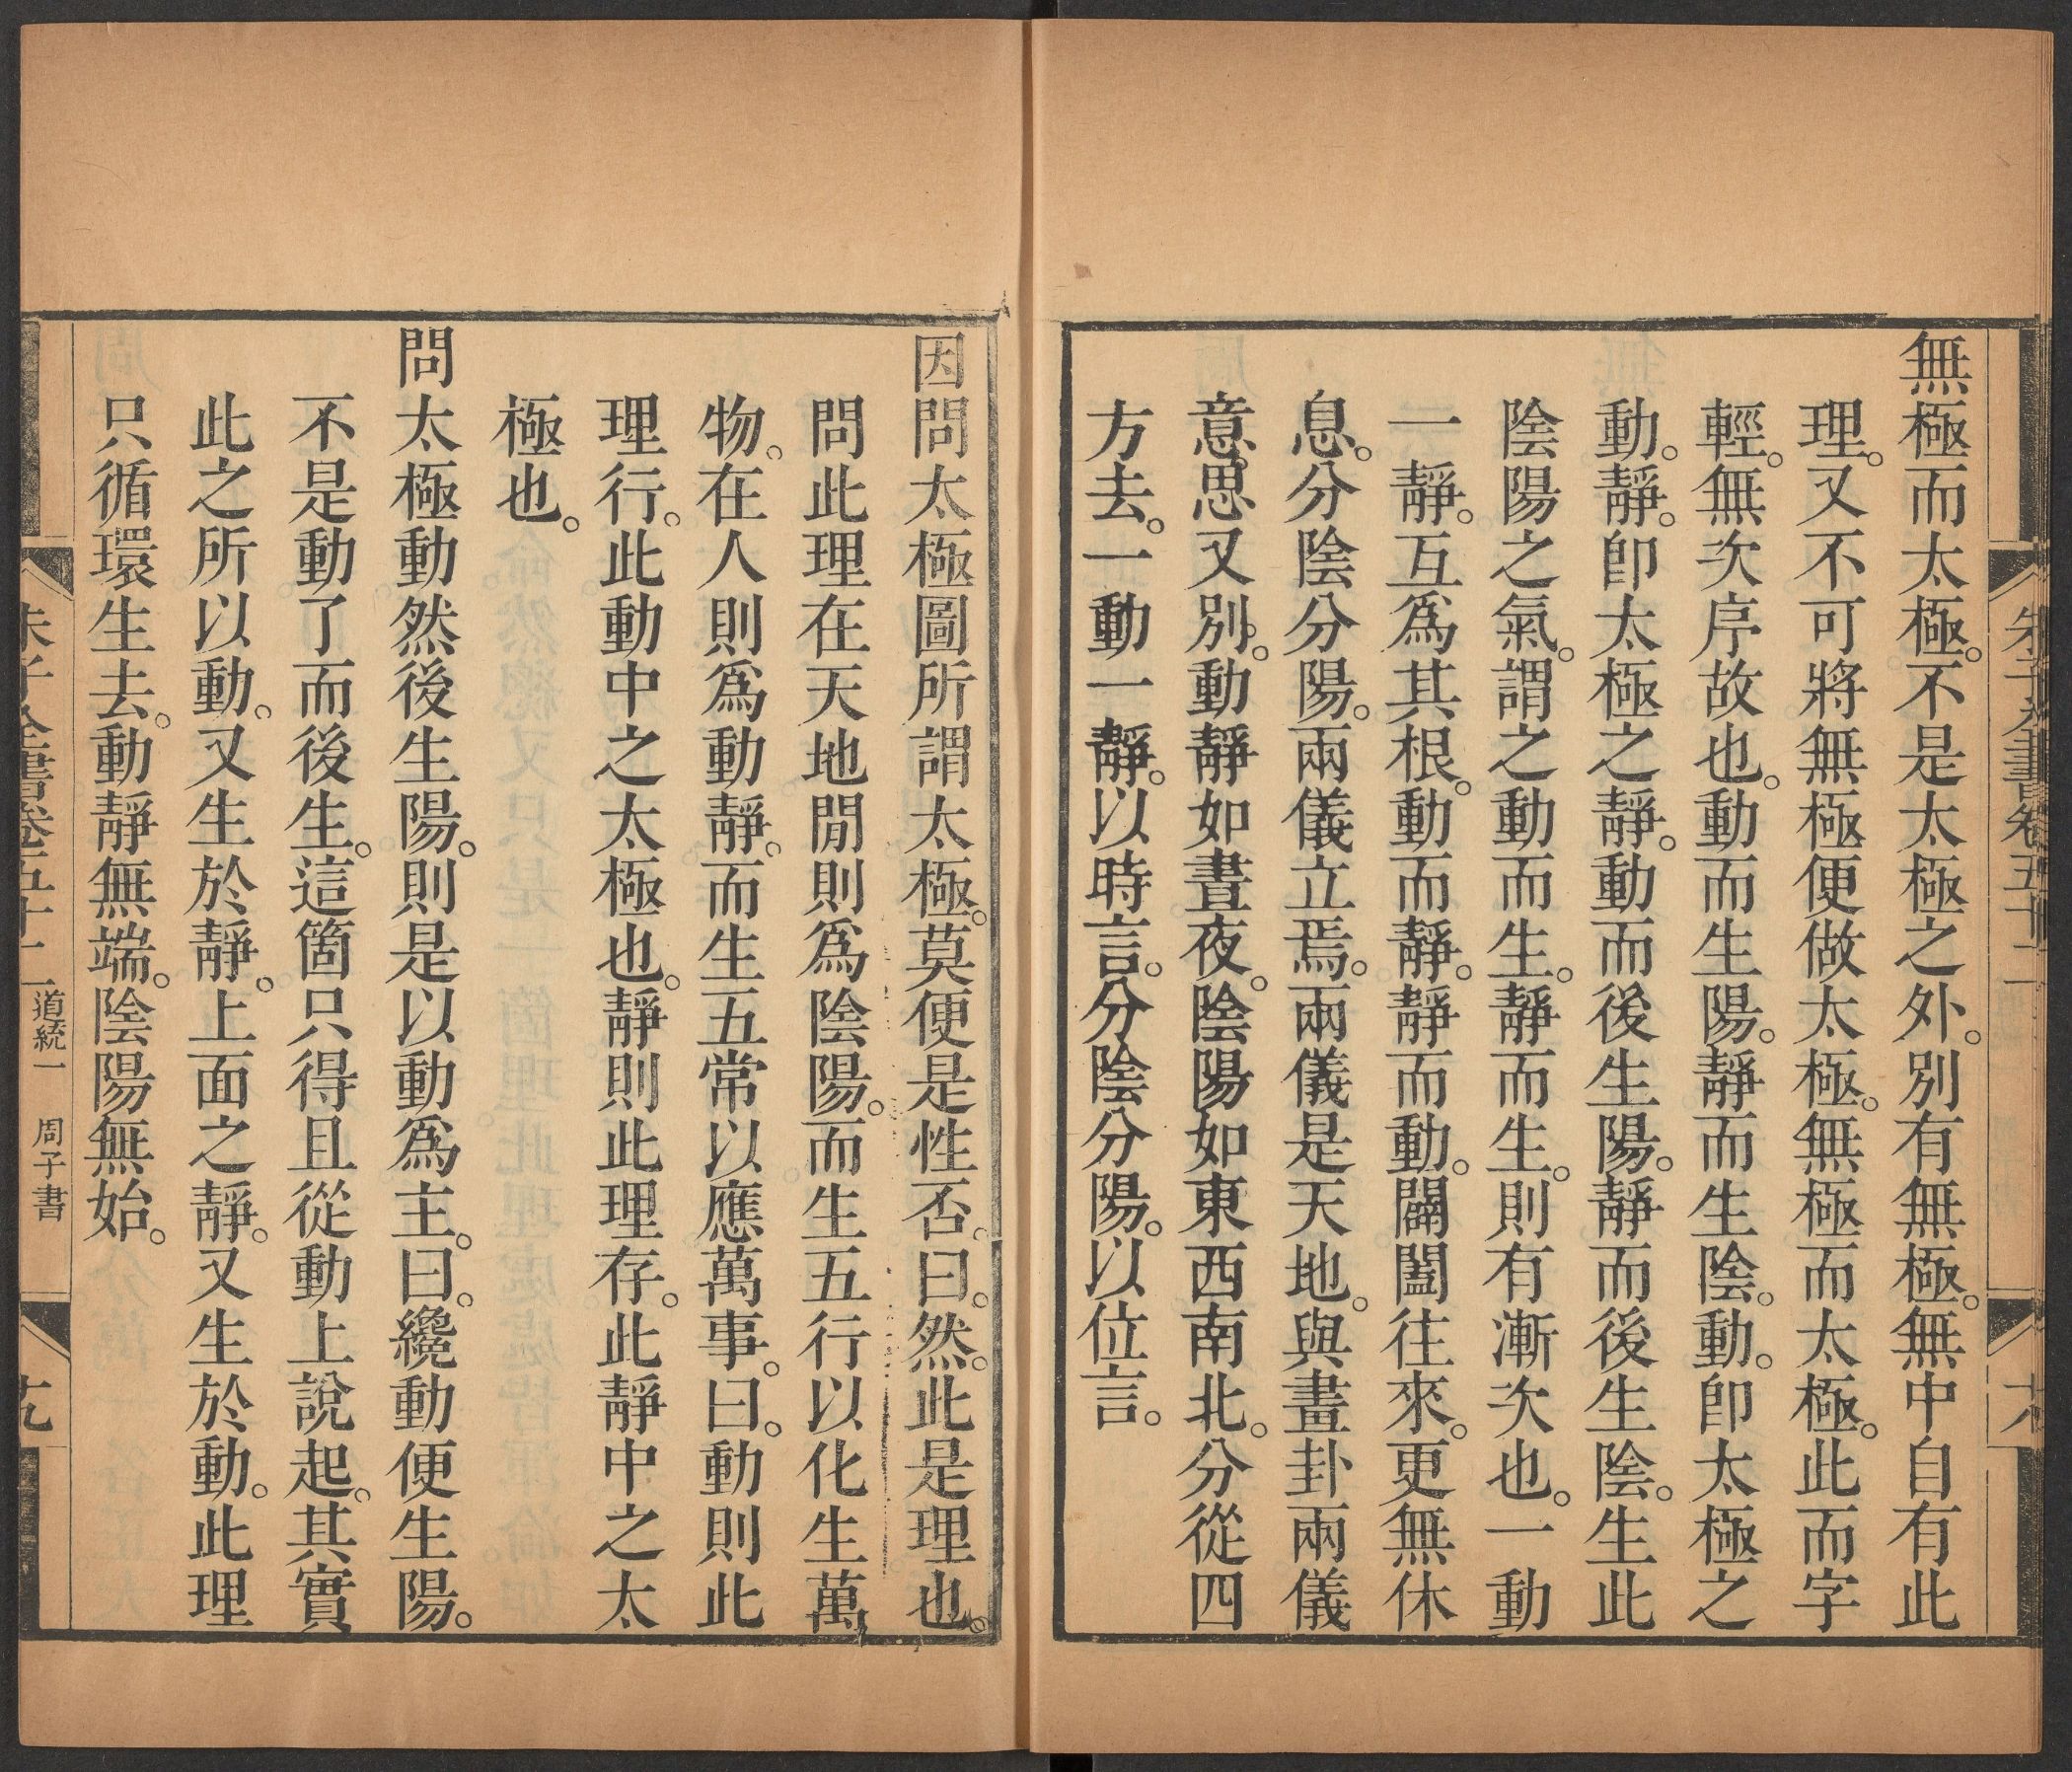 朱子全書卷五十二
十八
無極而太極。不是太極之外。別有無極。無中自有此
理。又不可將無極便做太極。無極而太極。此而字
輕。無次序故也。動而生陽。靜而生陰。動。卽太極之
動。靜。卽太極之靜。動而後生陽。靜而後生陰。生此
陰陽之氣。謂之動而生。靜而生。則有漸次也。一動
一靜。互爲其根。動而靜。靜而動。闢闔往來。更無休
息。分陰分陽。兩儀立焉。兩儀是天地。與畫卦兩儀
意。思又別。動靜如晝夜。陰陽如東西南北。分從四
方去。一動一靜。以時言。分陰分陽。以位言。
因問太極圖所謂太極。莫便是性否。曰。然。此是理也。
問此理在天地閒則爲陰陽。而生五行以化生萬
物。在人則爲動靜。而生五常以應萬事。曰。動則此
理行。此動中之太極也。靜則此理存。此靜中之太
極也。
問太極動然後生陽。則是以動爲主。曰。纔動便生陽。
不是動了而後生。這箇只得且從動上說起。其實
此之所以動。又生於靜。上面之靜。又生於動。此理
只循環生去。動靜無端。陰陽無始。
朱子全書卷五十二 道統一 周子書
十九